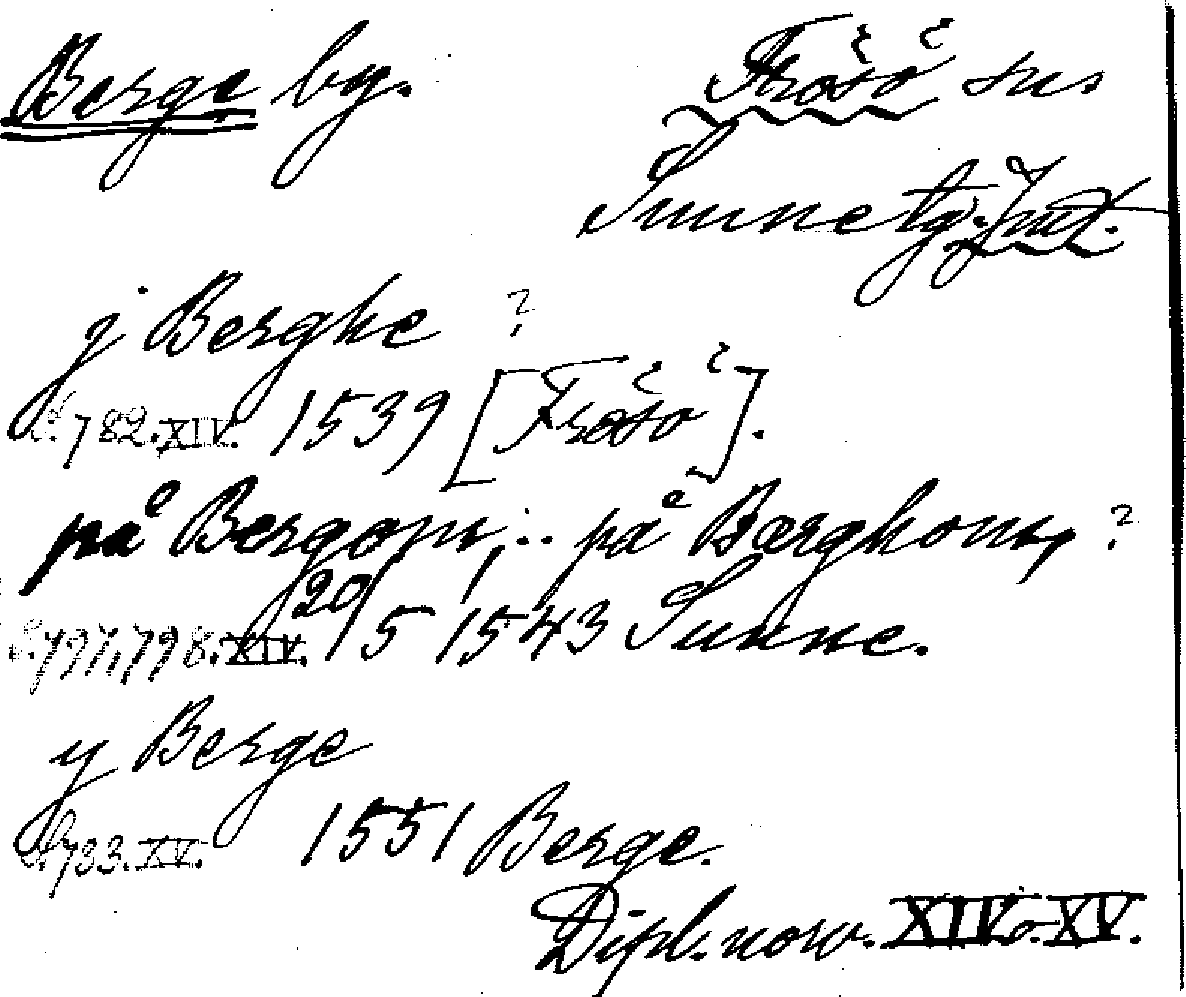 Berge by. Frösö sn
Sunne tg. Jmt.
j Berghe ?
s. 782. XIV. 1539 [Frösö].
på Bergom, .. på Bærghom, ?
s. 797, 798. XIV. 20/5 1543 Sunne.
y Berge
s. 733. XV. 1551 Berge.
Dipl. norv. XIV o. XV.